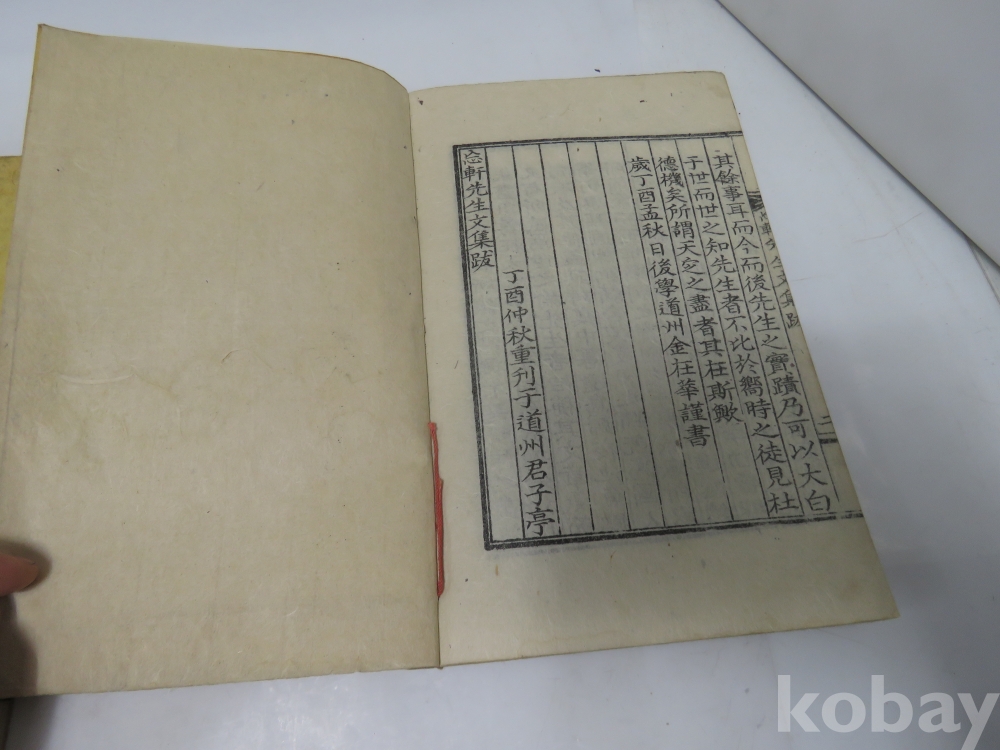 其餘事耳而今而後先生之實蹟乃可以大白
于世而世之知先生者不比於嚮時之徒見杜
德機矣所謂天定之盡者其在斯歟
歲丁酉孟秋日後學道州金在華謹書
丁酉仲秋重刊于道州君子亭
忘軒先生文集跋
忘軒先生文集跋
二
kobay